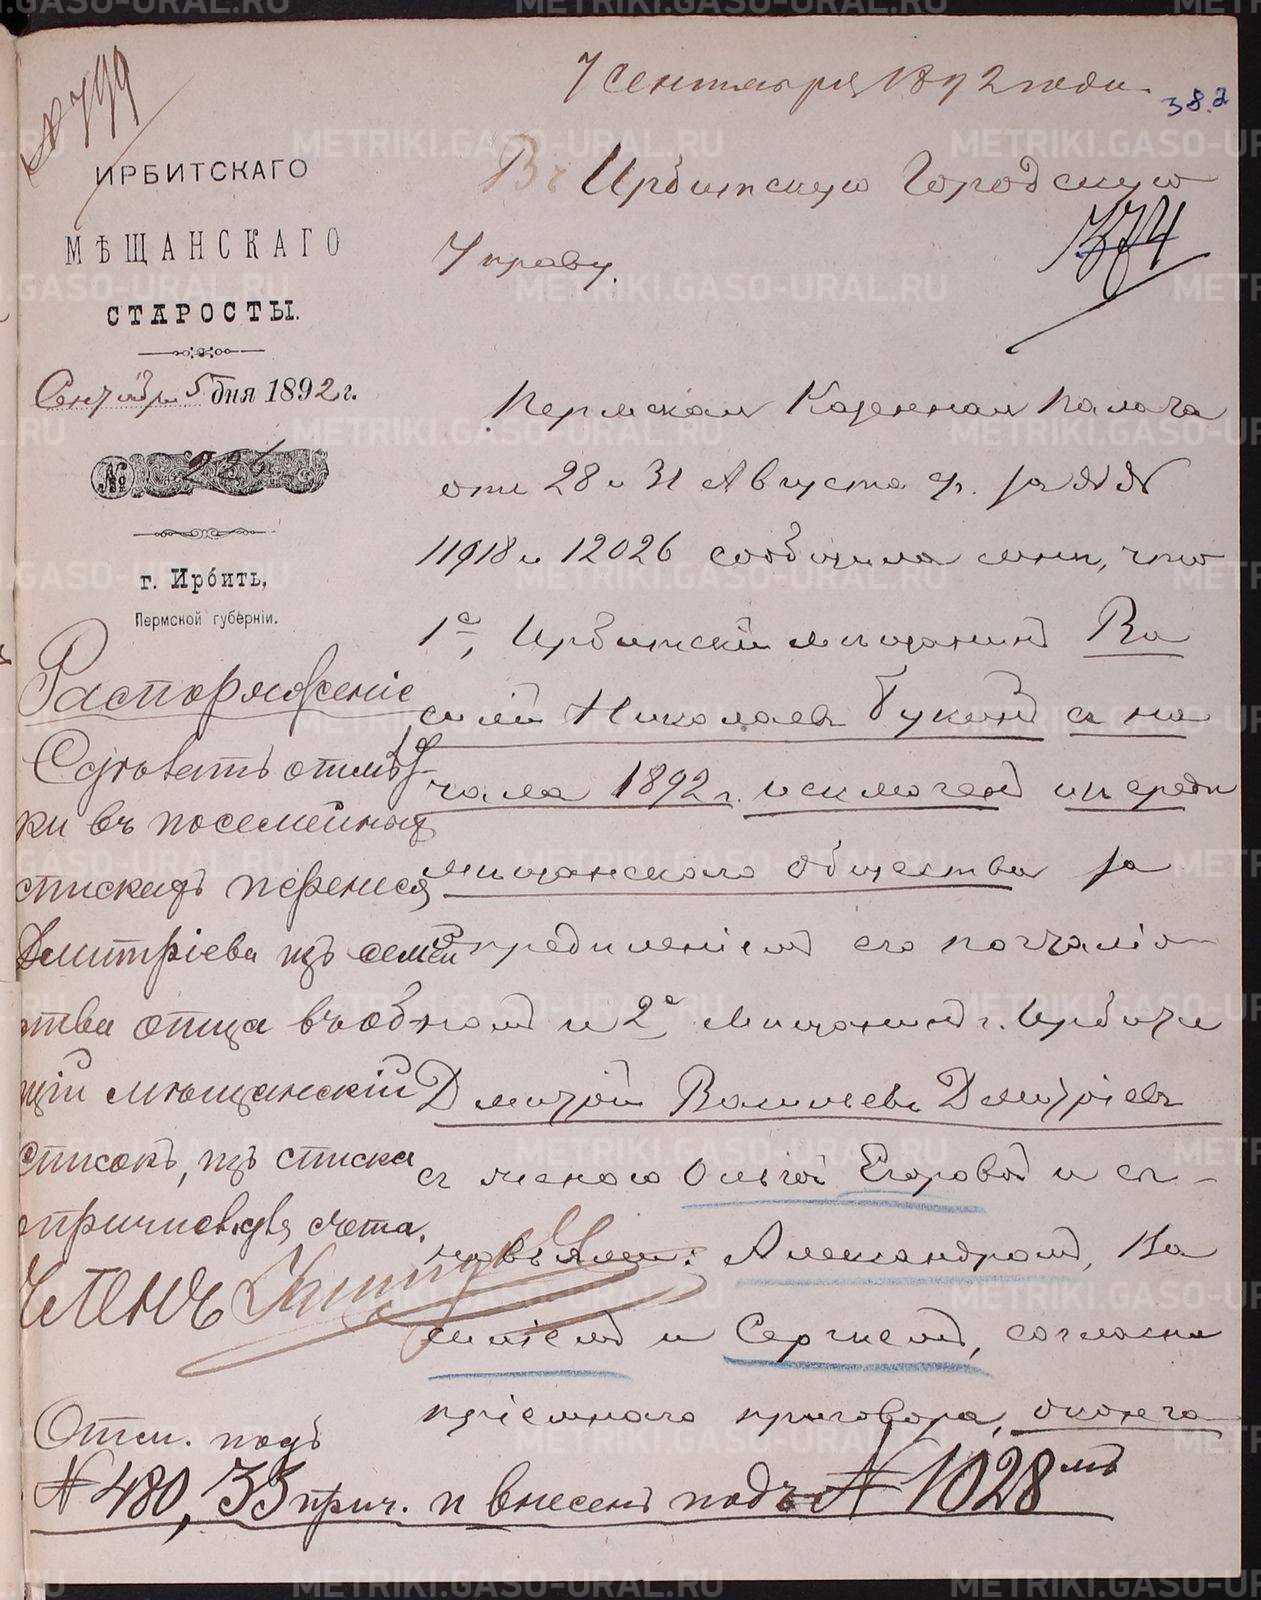 № 799
7 Сентября 1892 года
382
ИРБИТСКАГО
МѢЩАНСКАГО
СТАРОСТЫ.
Сентября 5 дня 1892 г.
№
г. Ирбить,
Пермской губернiи.
Въ Ирбитскую Городскую
374
Управу.
Пермская Казенная Палата
отъ 28 и 31 Августа за №№
11918 и 12026 сообщила мнѣ, что
1е, Ирбитскiй мѣщанинъ Ва
силiй Николаевъ Букинъ съ на
чала 1892 г. исключенъ изъ среды
мѣщанскаго общества за
опредѣленiемъ его почталiо
номъ и 2е, Мѣщанинъ г. Ирбити
Дмитрiй Васильевъ Дмитрiевъ
съ женою Ольгой Егоровой и сы-
новьями: Александромъ, Ва
силiемъ и Сергѣемъ, согласно
прiемнаго приговора, оконча
Распоряженiе
Сдѣлать отмѣт
ки въ посемейныхъ
спискахъ перенеся
Дмитрiева изъ семей
ства отца въ об
щiй мѣщанскiй
списокъ, изъ списка
счета.
Членъ
Отм. подъ
№ 480, 35 прич. и внесенъ подъ № 1028мъ
METRIKI.GASO-URAL.RU